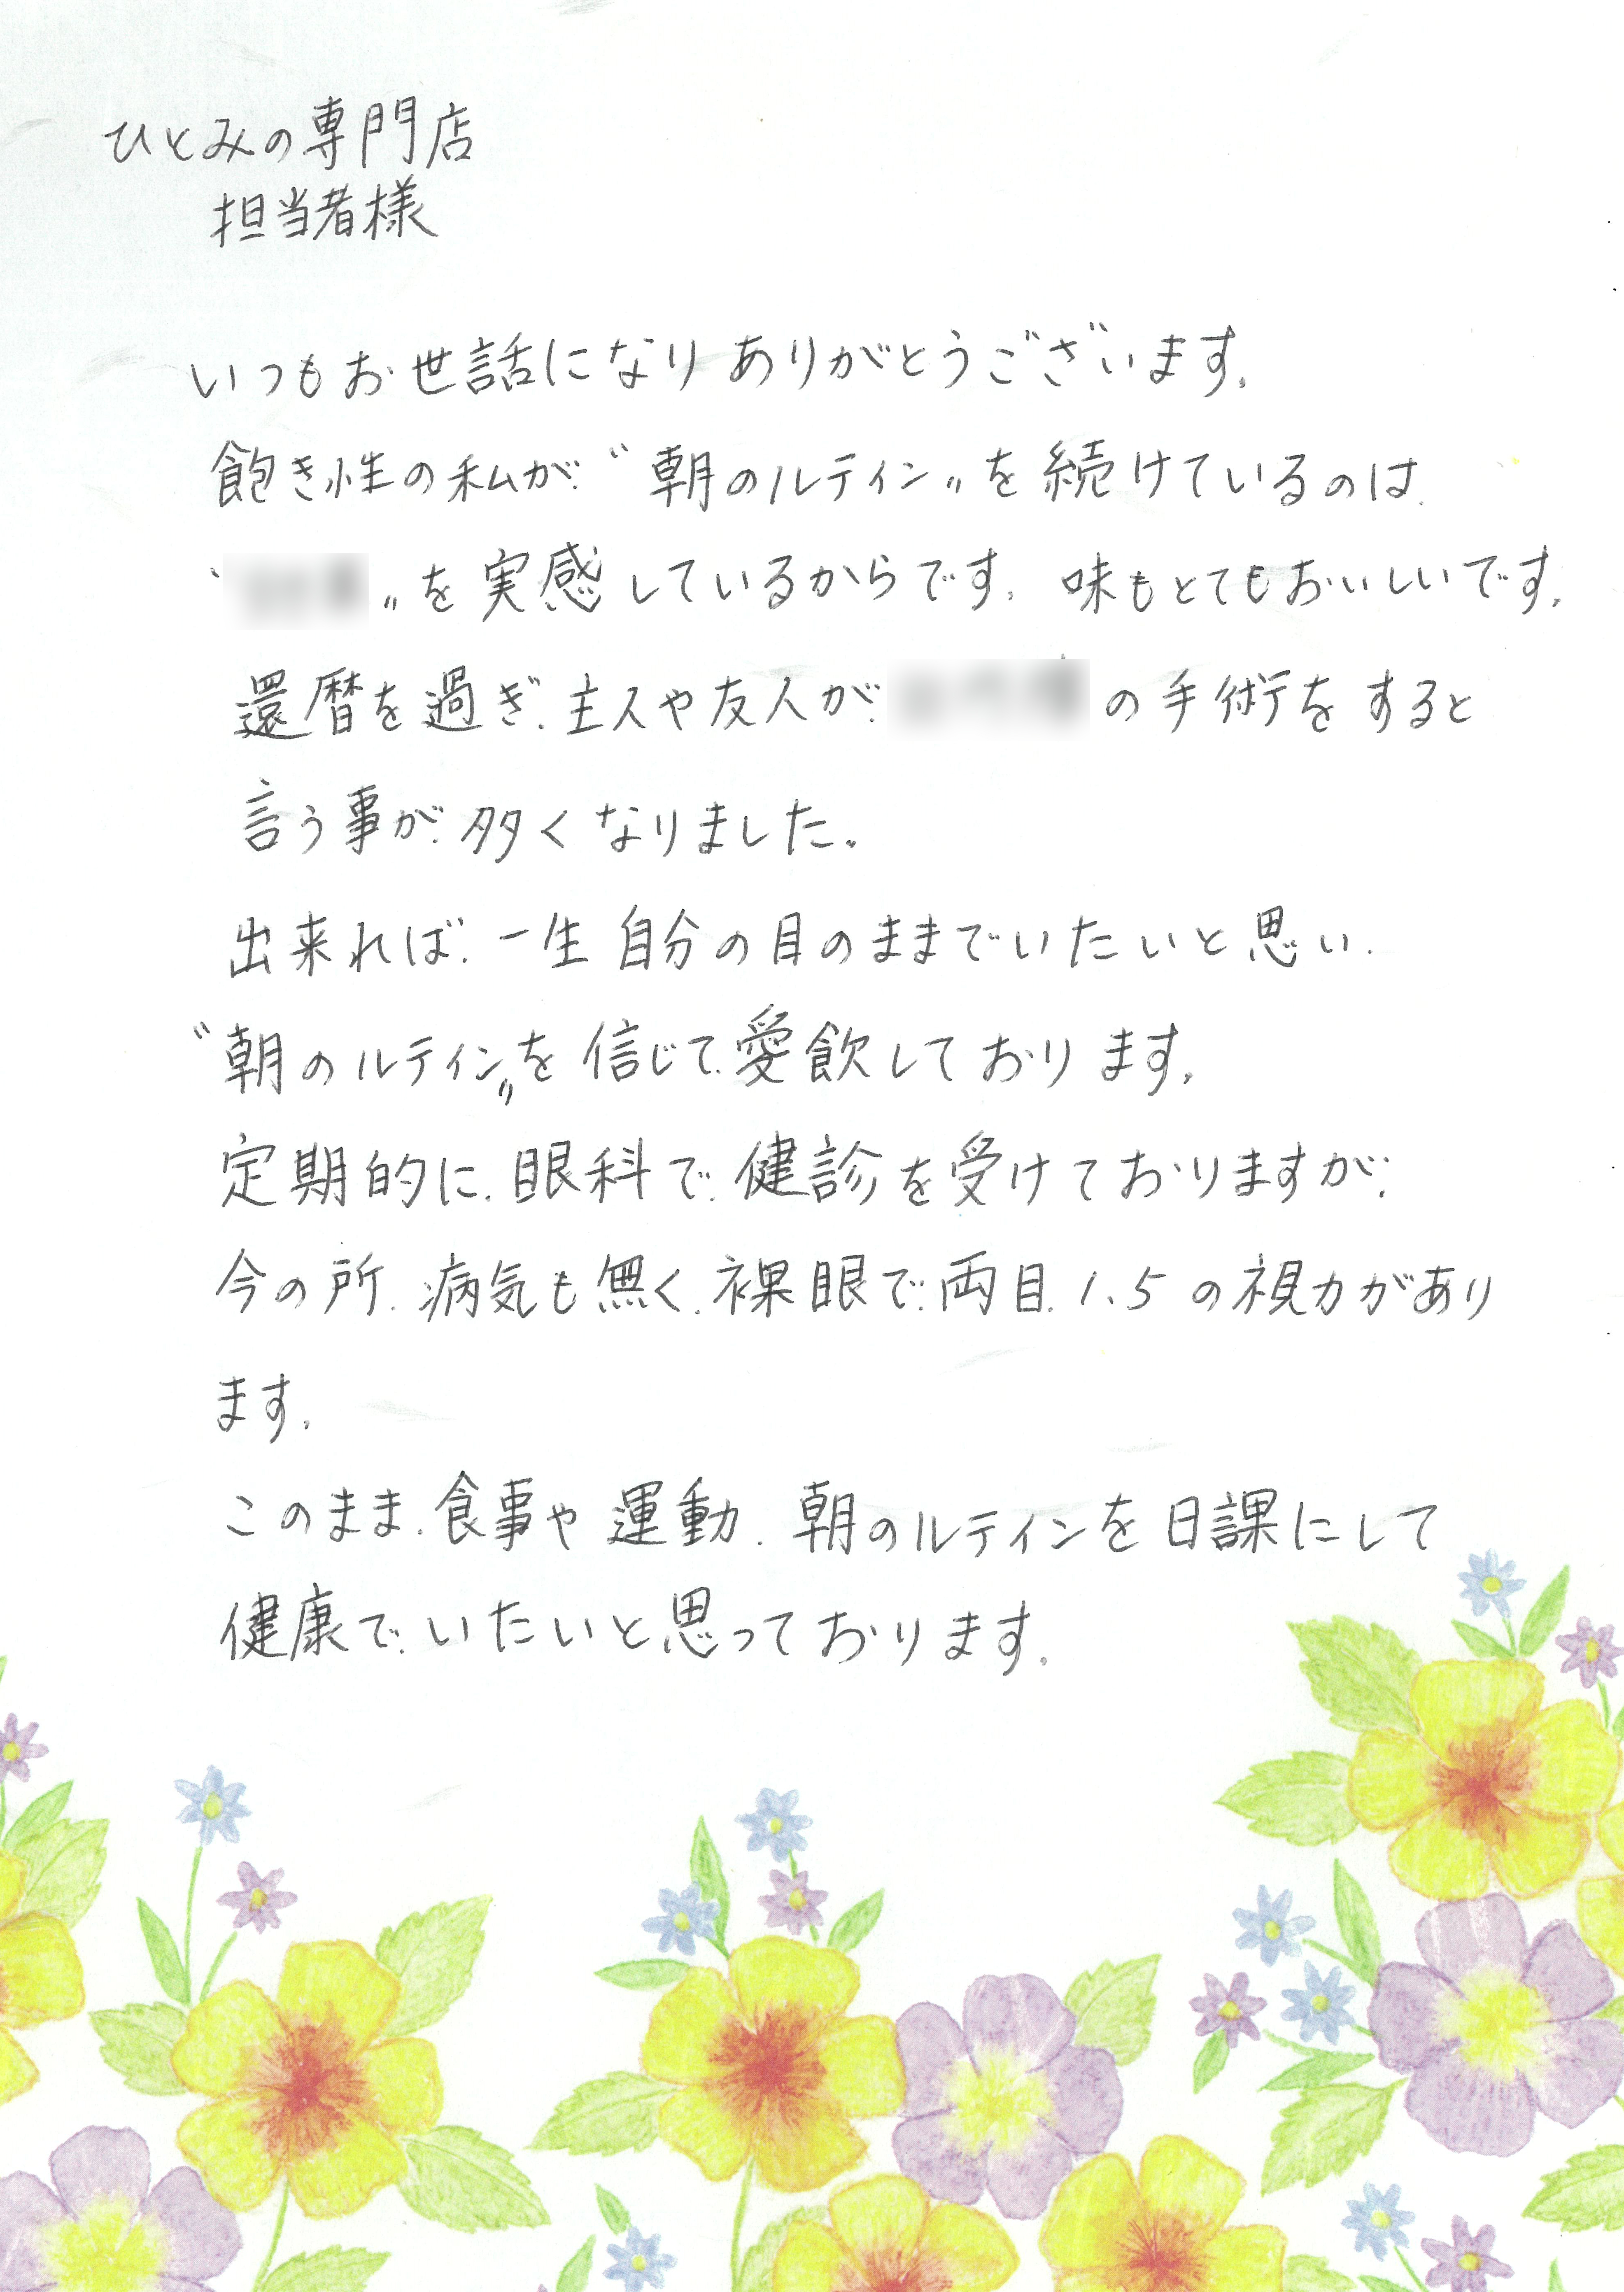 ひとみの専門店
担当者様
いつもお世話になり ありがとうございます。
飽き性の私が〝朝のルテイン〟を続けているのは、
〟を実感しているからです。味もとてもおいしいです。
還暦を過ぎ、主人や友人が、の手術をすると
言う事が多くなりました。
出来れば、一生自分の目のままでいたいと思い、
〝朝のルテイン〟を信じて、愛飲しております。
定期的に、眼科で、健診を受けておりますが、
今の所、病気も無く、裸眼で、両目、1.5の視力があり
ます。
このまま、食事や運動、朝のルテインを日課にして
健康で、いたいと思っております。